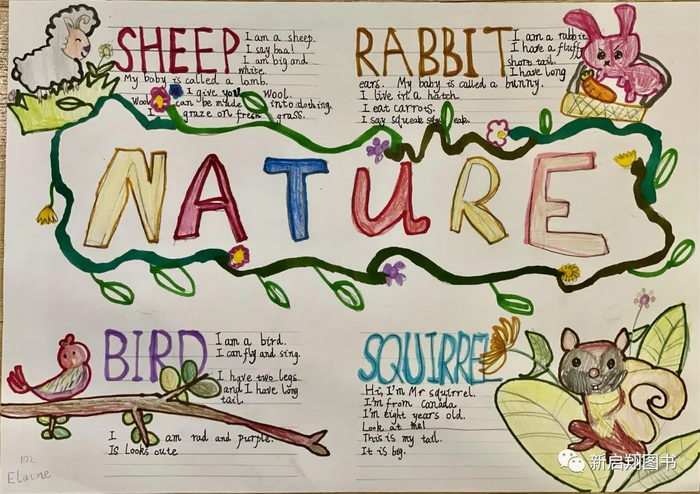 SHEEP
I am a sheep.
I say baa!
I am big and
white.
My baby is called a lamb.
I give you wool.
Wool can be made into clothing.
I graze on fresh grass.
RABBIT
I am a rabbit
I have a fluff
short tail.
I have long
ears. My baby is called a bunny.
I live in a hutch
I eat carrots.
I say squeak squeak.
NATURE
BIRD
I am a bird.
I can fly and sing.
I have two legs
and I have long
tail.
I am red and purple.
Is Looks cute
SQUIRREL
Hi, I'm Mr squirrel.
I'm from canada
I'm eight years old.
Look at me!
This is my tail.
It is big.
Elaine
新启翔图书